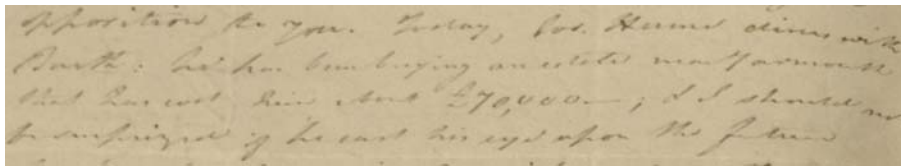 opposition to you. Today, Col. Hume dines with
Barth: he has been buying an estate near Yarmouth
that has cost him about £70,000—; & I should not
be surprized if he cast his eye upon the future